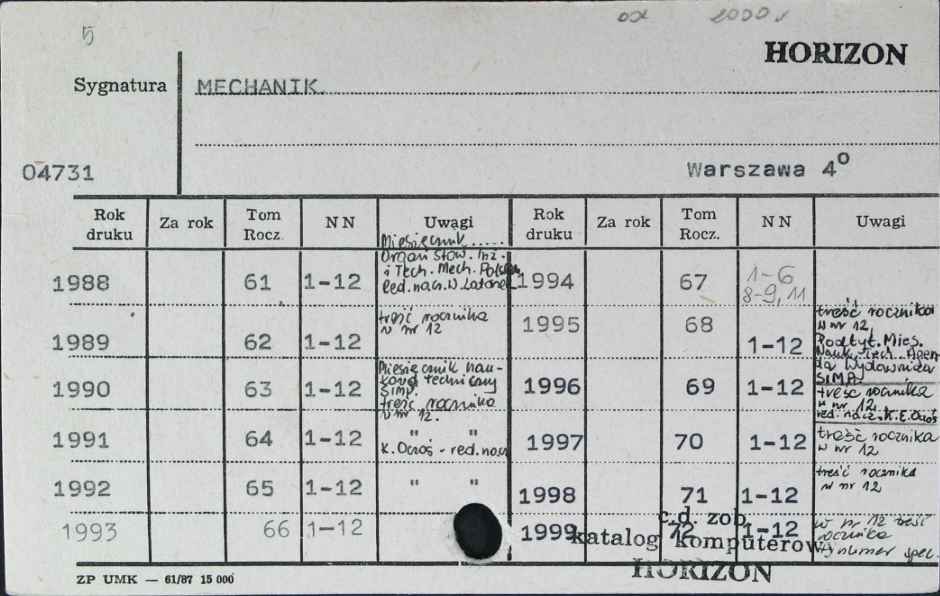 5
od 2000 r
HORIZON
Sygnatura
MECHANIK.
04731
Warszawa 4º
Rok druku Za rok Tom Rocz. NN Uwagi Rok druku Za rok Tom Rocz. NN Uwagi
1988 61 1-12
Miesięcznik.....
Organ Stow. Inż.
i Tech. Mech. Polskich
Red. nacz. W.
1994 67 1-6
8-9, 11
1989 62 1-12
treść rocznika
w nr 12
1995 68 1-12
treść rocznika
w nr 12
Podtyt. Mies.
Nauk.-Tech. Agen-
da Wydawnicza
SIMP.
1990 63 1-12
Miesięcznik nau-
kowo techniczny
SIMP.
treść rocznika
w nr 12.
1996 69 1-12
treść rocznika
w nr 12
red. nacz. K.E. Ocoś
1991 64 1-12
" "
K. Ocoś - red. nacz
1997 70 1-12
treść rocznika
w nr 12
1992 65 1-12
" "
1998 71 1-12
treść rocznika
w nr 12
1993 66 1-12
1999 72 1-12
w nr 12 treść
rocznika
numer spec.
c.d. zob.
katalog komputerowy
HORIZON
ZP UMK — 61/87 15 000